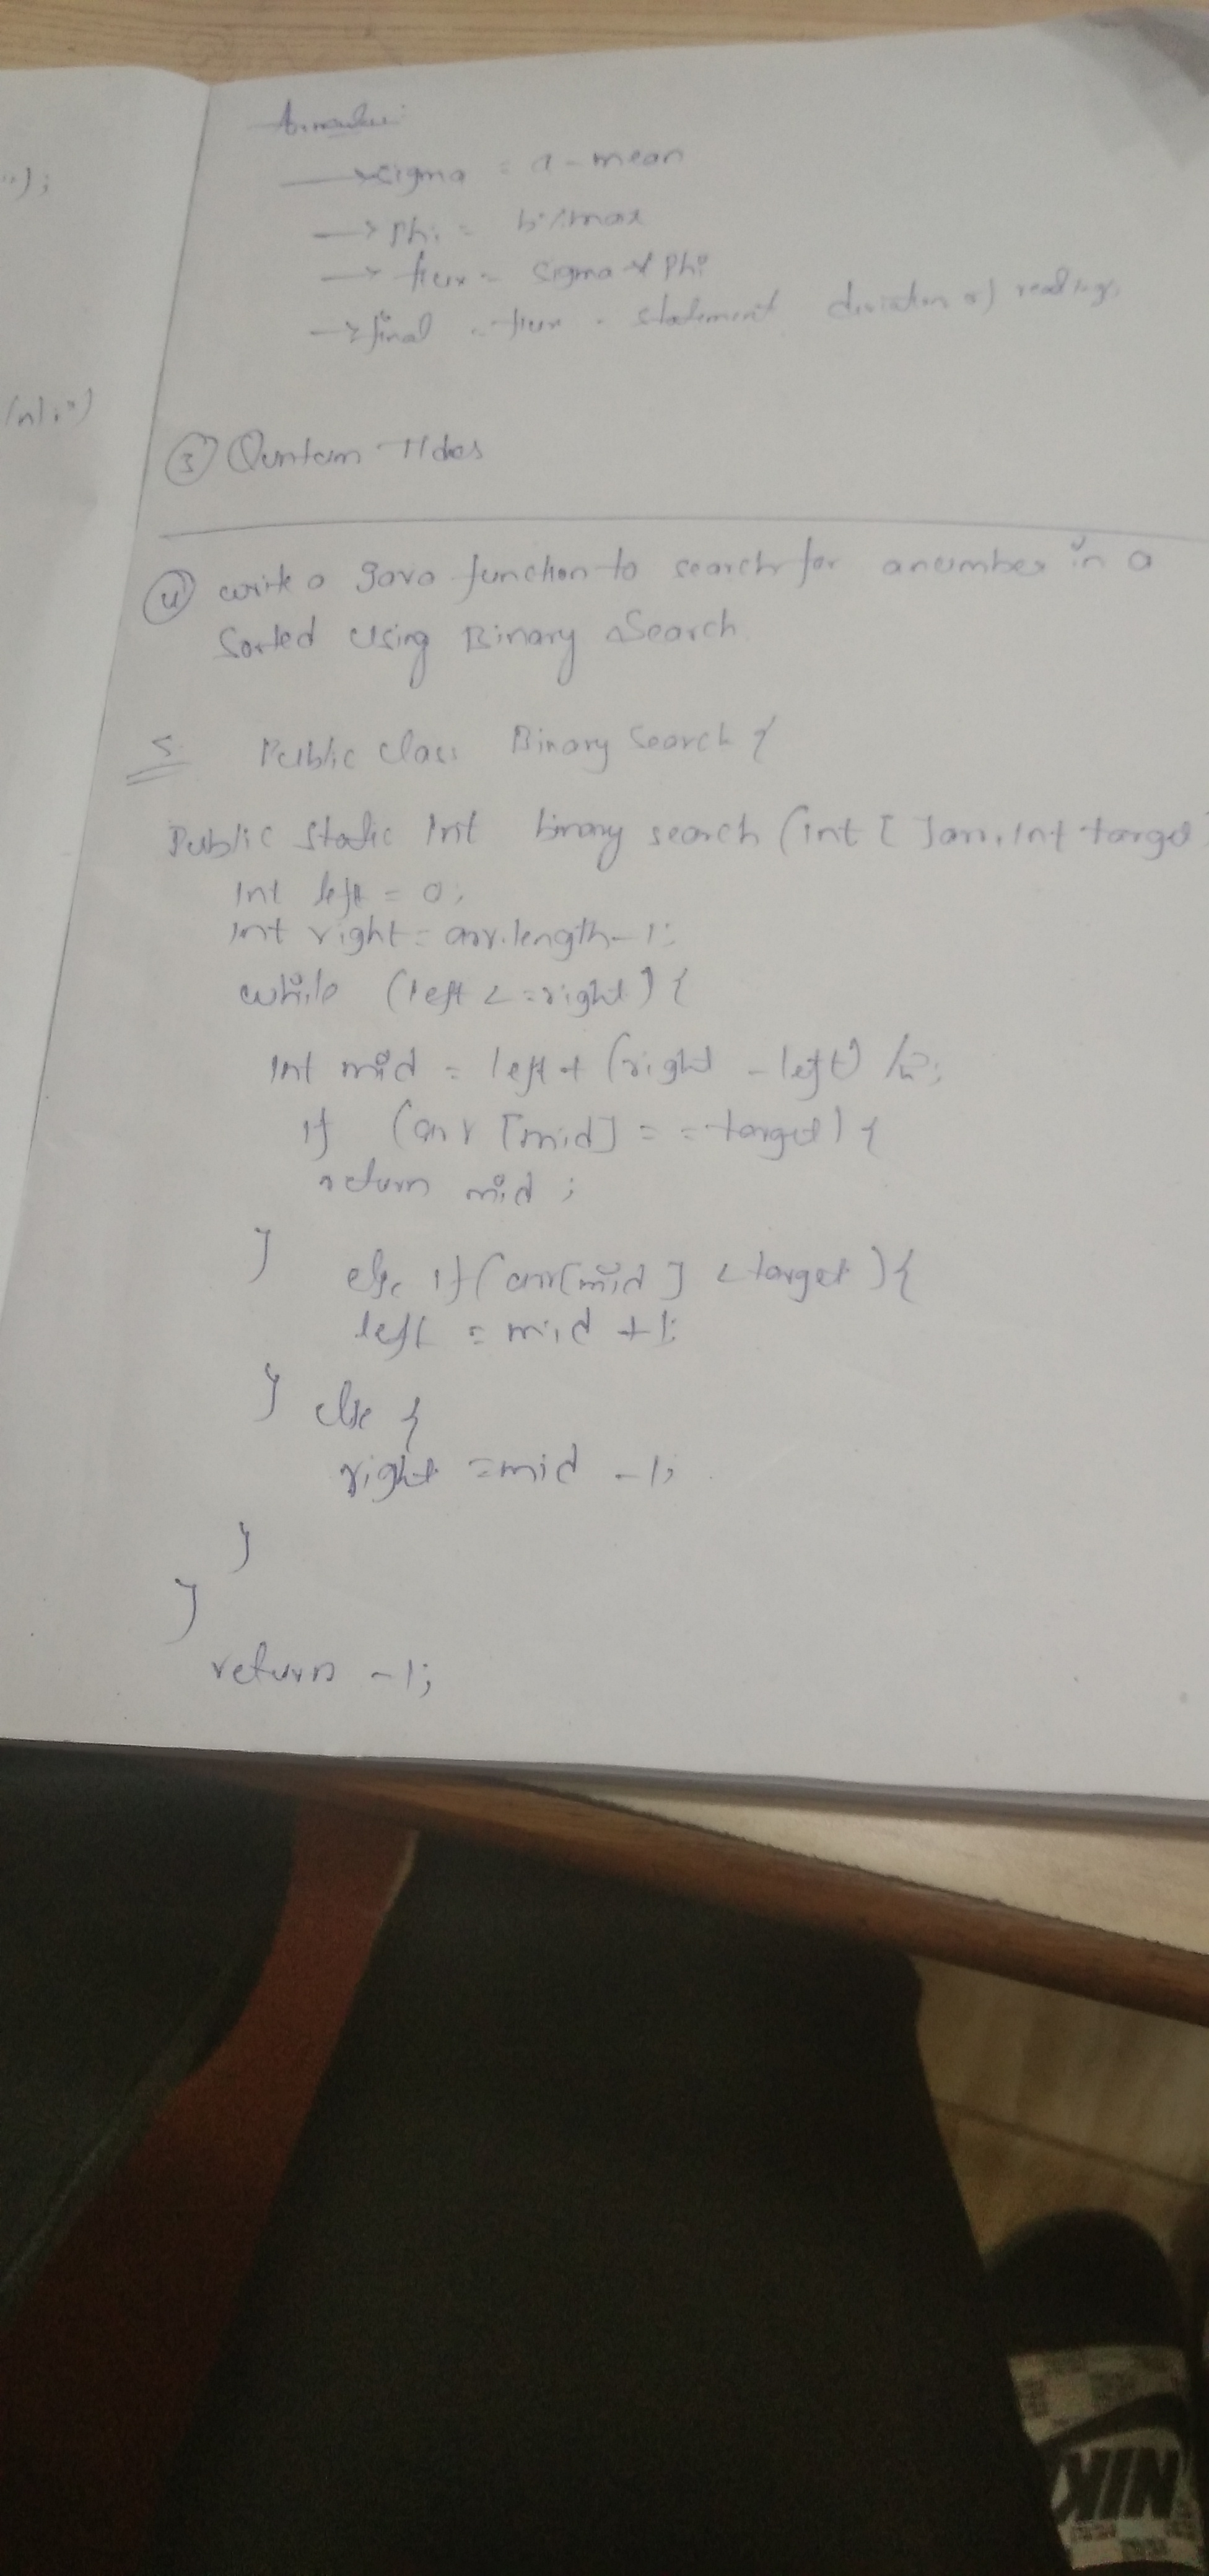 ");
/n1;")
→ sigma = a - mean
→ Phi = b / max
→ flux = sigma * Phi
→ final = flux - statement deviation of readings
③ Quntem Tides
④ write a Java function to search for a number in a
Sorted using Binary Search
S. Public class Binary Search {
Public static int binary search (int [ ] arr, int target)
int left = 0;
int right = arr.length-1;
while (left <= right) {
int mid = left + (right - left) /2;
if (arr [mid] == target) {
return mid ;
}
else if (arr[mid] < target) {
left = mid +1;
} else {
right = mid -1;
}
}
return -1;
NIK